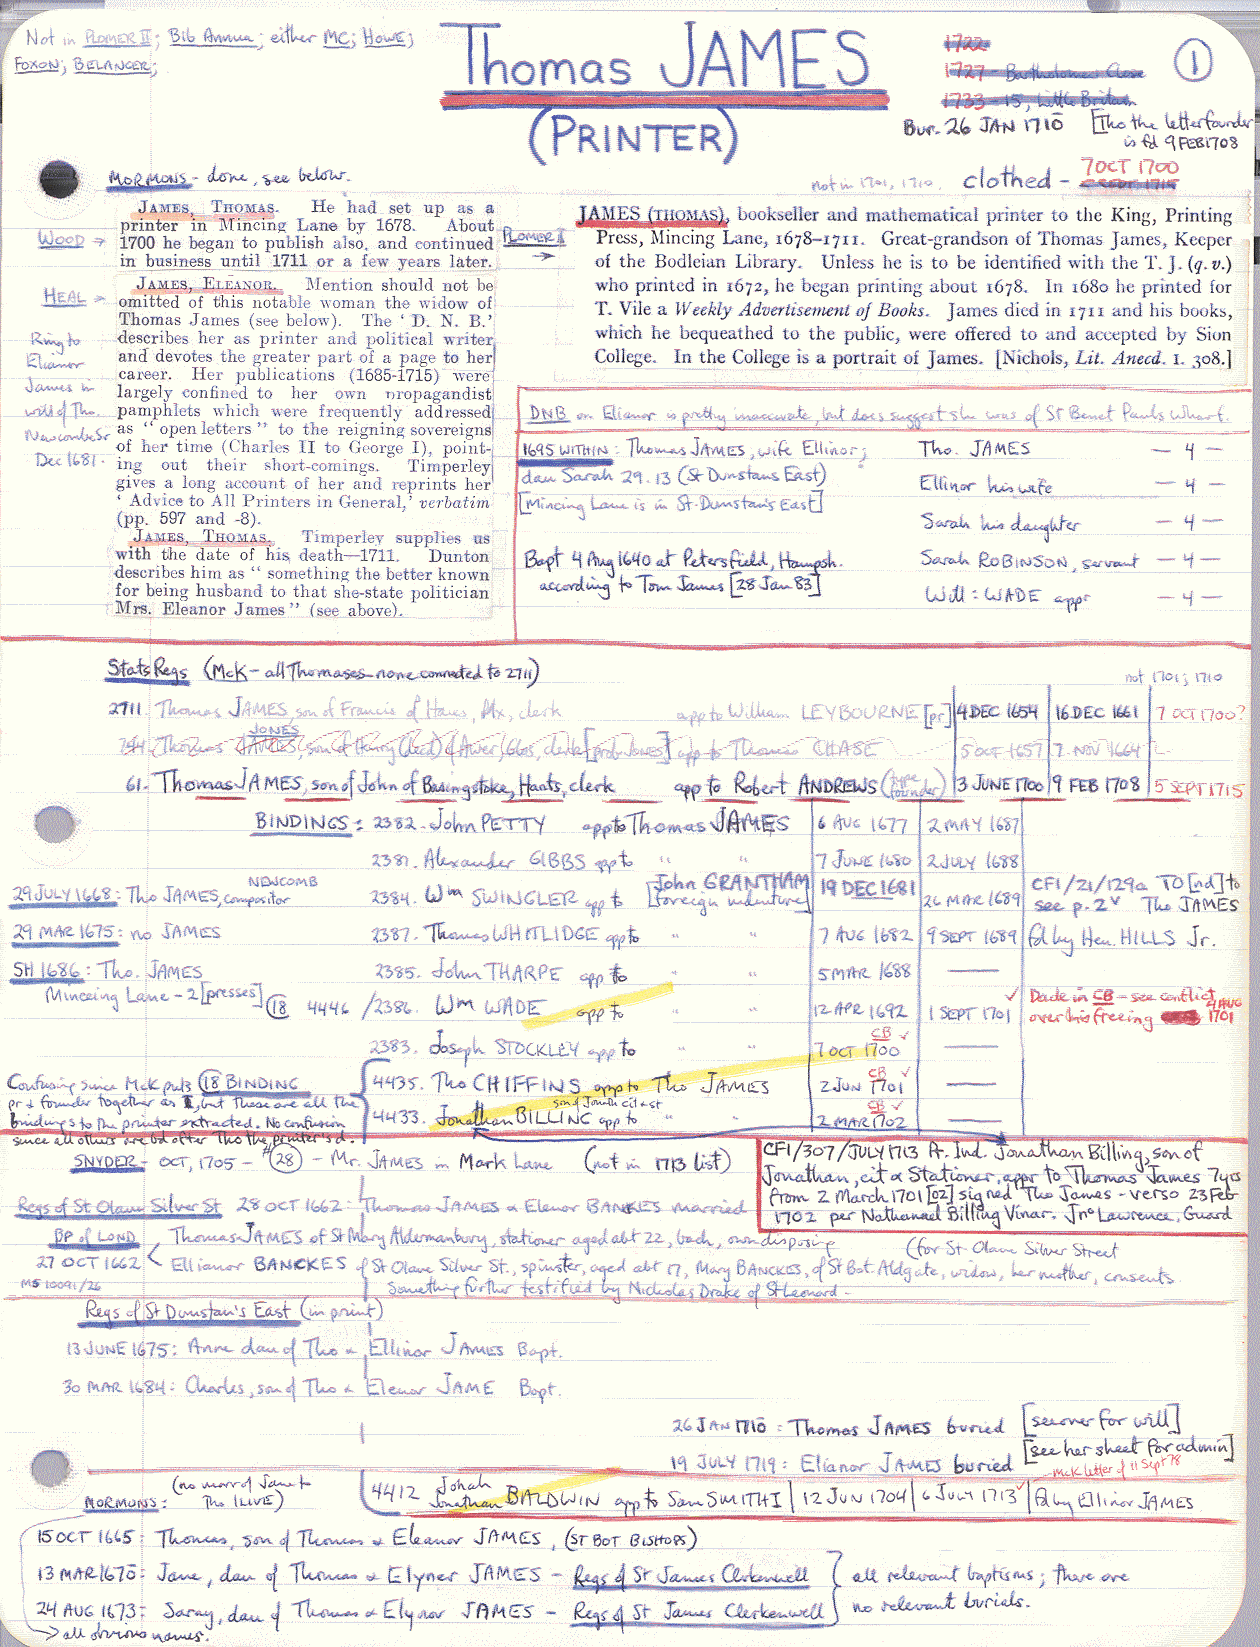 Not in PLOMER II; Bib Annua; either MC; HOWE;
FOXON; BELANGER;
Thomas JAMES
(PRINTER)
1
1722
1727 - Bartholomew Close
1733 - 15, Little Britain
Bur. 26 JAN 1710 [Tho the letterfounder
is fd 9 FEB 1708
MORMONS - done, see below.
not in 1701, 1710. clothed - 7 OCT 1700
WOOD →
JAMES, THOMAS. He had set up as a
printer in Mincing Lane by 1678. About
1700 he began to publish also, and continued
in business until 1711 or a few years later.
HEAL →
JAMES, ELEANOR. Mention should not be
omitted of this notable woman the widow of
Thomas James (see below). The ‘ D. N. B.’
describes her as printer and political writer
and devotes the greater part of a page to her
career. Her publications (1685-1715) were
largely confined to her own propagandist
pamphlets which were frequently addressed
as “ open letters ” to the reigning sovereigns
of her time (Charles II to George I), point-
ing out their short-comings. Timperley
gives a long account of her and reprints her
‘ Advice to All Printers in General,’ verbatim
(pp. 597 and -8).
JAMES, THOMAS. Timperley supplies us
with the date of his death—1711. Dunton
describes him as “ something the better known
for being husband to that she-state politician
Mrs. Eleanor James ” (see above).
Ring to
Elianor
James in
will of Tho.
Newcombe Sr
Dec 1681.
PLOMER II
→
JAMES (THOMAS), bookseller and mathematical printer to the King, Printing
Press, Mincing Lane, 1678–1711. Great-grandson of Thomas James, Keeper
of the Bodleian Library. Unless he is to be identified with the T. J. (q. v.)
who printed in 1672, he began printing about 1678. In 1680 he printed for
T. Vile a Weekly Advertisement of Books. James died in 1711 and his books,
which he bequeathed to the public, were offered to and accepted by Sion
College. In the College is a portrait of James. [Nichols, Lit. Anecd. I. 308.]
DNB on Elianor is pretty inaccurate, but does suggest she was of St Benet Pauls Wharf.
1695 WITHIN: Thomas JAMES, wife Ellinor;
dau Sarah 29.13 (St Dunstans East)
[Mincing Lane is in St Dunstan's East]
Bapt 4 Aug 1640 at Petersfield, Hampsh.
according to Tom James [28 Jan 83]
Tho. JAMES — 4 —
Ellinor his wife — 4 —
Sarah his daughter — 4 —
Sarah ROBINSON, servant — 4 —
Will: WADE appr — 4 —
Stats Regs (McK - all Thomases - none connected to 2711)
not 1701, 1710
2711. Thomas JAMES, son of Francis of Hayes, Mx, clerk app to William LEYBOURNE [pr] 4 DEC 1654 16 DEC 1661 7 OCT 1700?
JONES
Thomas JAMES, son of Henry (decd) of Awer, Glos, clerk [prob JONES] app to Thomas CHASE 5 OCT 1657 7 NOV 1664
61. Thomas JAMES, son of John of Basingstoke, Hants, clerk app to Robert ANDREWS (type founder) 3 JUNE 1700 9 FEB 1708 5 SEPT 1715
BINDINGS: 2382. John PETTY app to Thomas JAMES 6 AUG 1677 2 MAY 1687
2381. Alexander GIBBS app to " " 7 JUNE 1680 2 JULY 1688
29 JULY 1668: Tho JAMES, compositor NEWCOMB
2384. Wm SWINGLER app to [John GRANTHAM foreign indenture] 19 DEC 1681 26 MAR 1689 CF1/21/129a TO [nd] to
see p. 2v Tho JAMES
29 MAR 1675: no JAMES
2387. Thomas WHITLIDGE app to " " 7 AUG 1682 9 SEPT 1689 fd by Hen. HILLS Jr.
SH 1686: Tho. JAMES
Minceing Lane - 2 [presses]
2385. John THARPE app to " " 5 MAR 1688 —
18 4446 / 2386. Wm WADE app to " " 12 APR 1692 1 SEPT 1701 ✓ Dade in CB - see conflict
over his freeing 4 AUG 1701
2383. Joseph STOCKLEY app to " " CB ✓ 7 OCT 1700 —
Confusing since McK puts 18 BINDING
pr & founder together as 1, but these are all the
bindings to the printer extracted. No confusion
since all others are bd after Tho the printer's d.
4435. Tho CHIFFINS app to Tho JAMES CB ✓ 2 JUN 1701 —
son of Jonath cit & st
4433. Jonathan BILLING app to " " CB ✓ 2 MAR 1702 —
SNYDER - OCT, 1705 - #28 - Mr. JAMES in Mark Lane (not in 1713 list)
CF1/307/JULY 1713 Pr. Ind. Jonathan Billing, son of
Jonathan, cit & Stationer, appr to Thomas James 7yrs
from 2 March 1701 [02] signed Tho James - verso 23 Feb
1702 per Nathanael Billing Vinar. Jno Lawrence, Guard
Regs of St Olave Silver St 28 OCT 1662: Thomas JAMES & Elenor BANCKES married
BP of LOND
27 OCT 1662
MS 10091/26
Thomas JAMES of St Mary Aldermanbury, stationer aged abt 22, bach, own disposing
(for St. Olave Silver Street
Ellianor BANCKES of St Olave Silver St., spinster, aged abt 17, Mary BANCKES, of St Bot. Aldgate, widow, her mother, consents.
Something further testified by Nicholas Drake of St Leonard -
Regs of St Dunstan's East (in print)
13 JUNE 1675: Anne dau of Tho & Ellinor JAMES Bapt.
30 MAR 1684: Charles, son of Tho & Elenor JAME Bapt.
26 JAN 1710: Thomas JAMES buried [see over for will]
19 JULY 1719: Elianor JAMES buried [see her sheet for admin]
McK letter of 11 Sept 78
MORMONS: (no marr of Jane to
Tho ILIVE)
4412 Jonah
Jonathan BALDWIN app to Sam SMITH I 12 JUN 1704 6 JULY 1713 ✓ fd by Ellinor JAMES
15 OCT 1665: Thomas, son of Thomas & Eleanor JAMES, (ST BOT BISHOPS)
13 MAR 1670: Jane, dau of Thomas & Elyner JAMES - Regs of St James Clerkenwell
24 AUG 1673: Saray, dau of Thomas & Elynor JAMES - Regs of St James Clerkenwell
all relevant baptisms; there are
no relevant burials.
→ all obvious names.